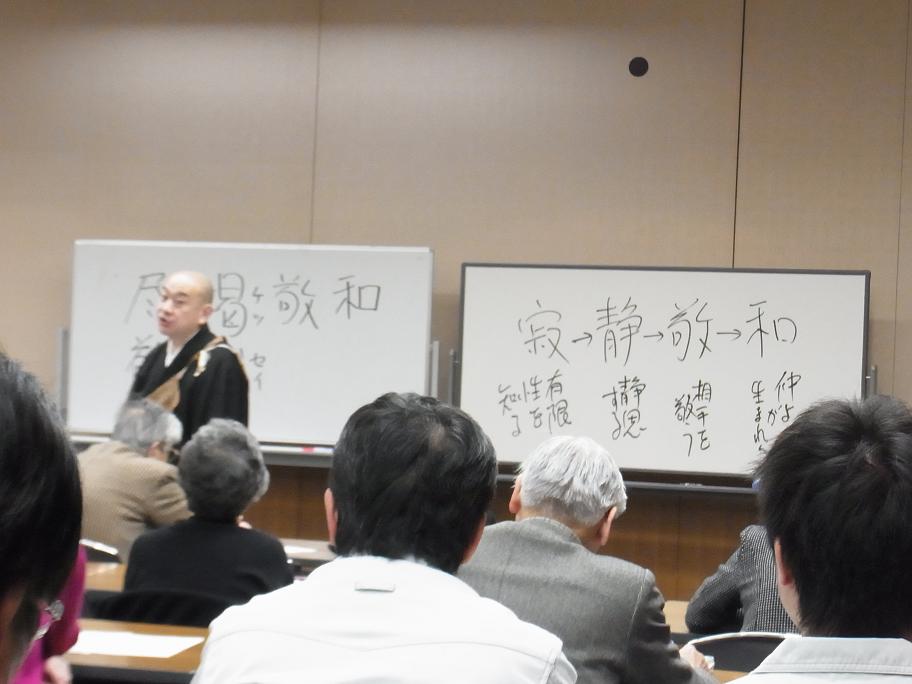 尽竭敬和
ケツ
セイ
寂→静→敬→和
有限
性を
知る
静思
する
相手を
敬う
仲よ
生まれ